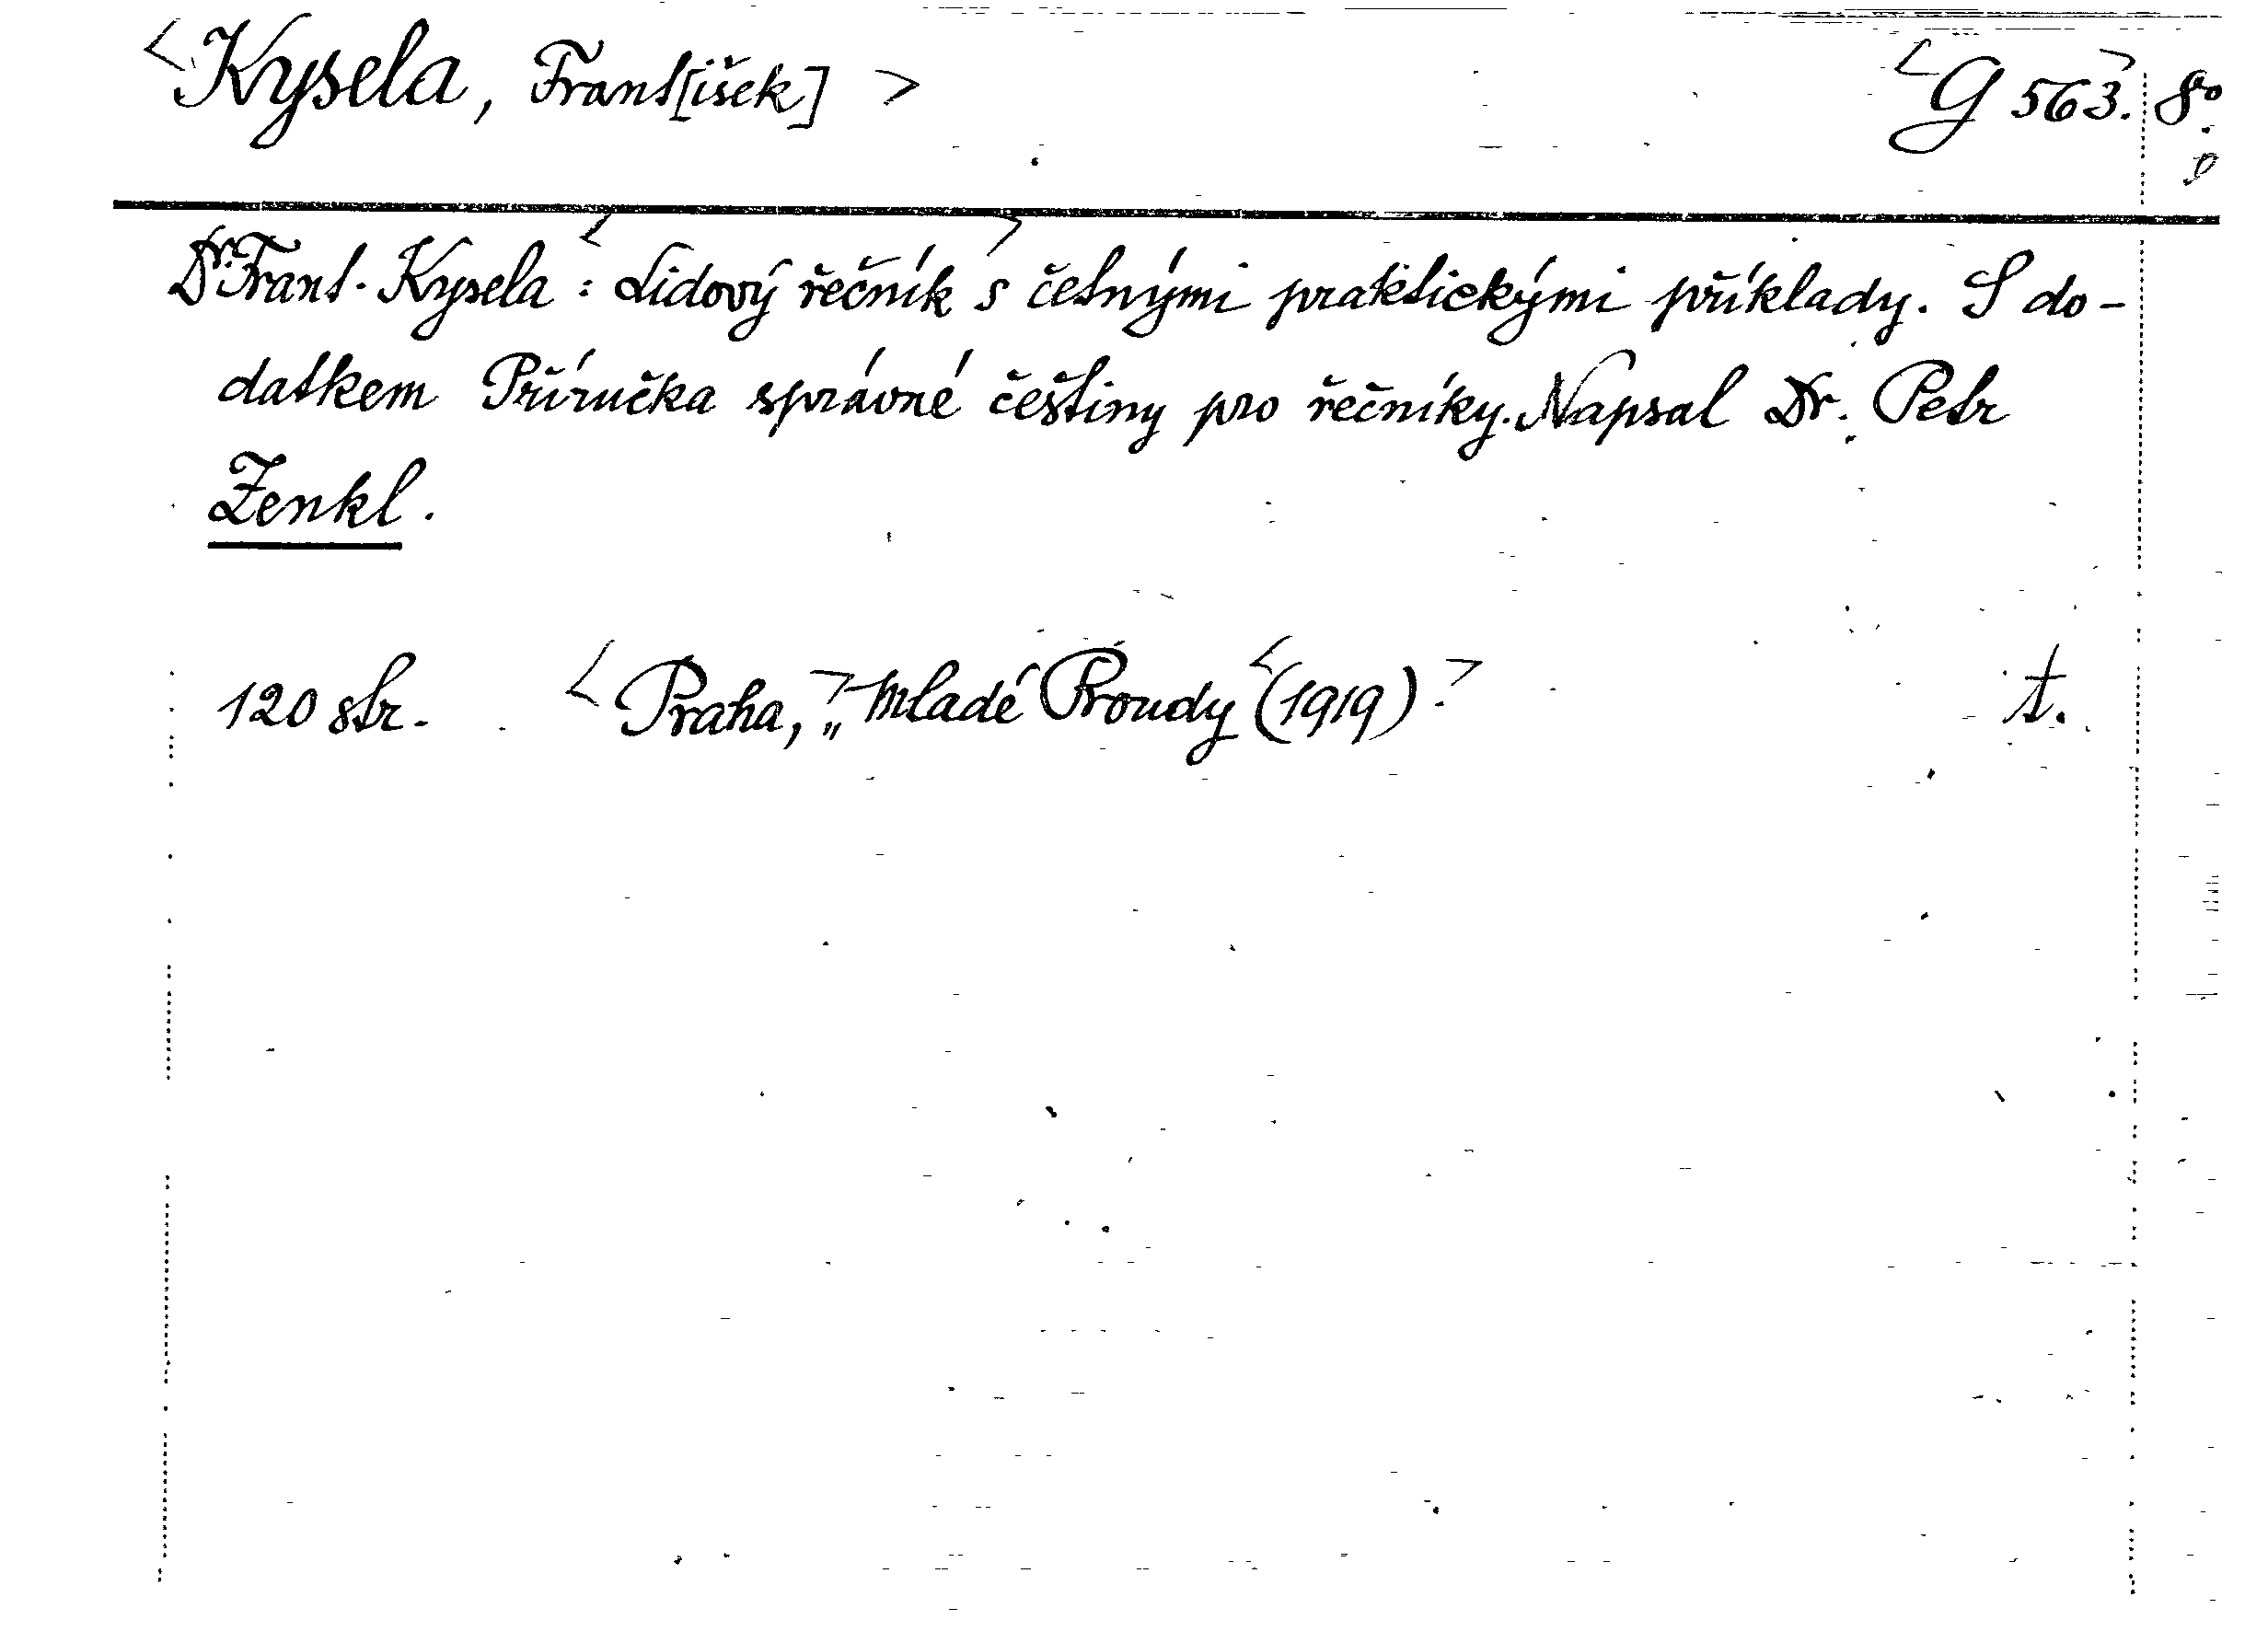 <Kysela, Frant[išek]> <G 563.> 8º.
Dr. Frant. Kysela: <Lidový řečník> s četnými praktickými příklady. S do-
datkem Příručka správné češtiny pro řečníky. Napsal Dr. Petr
Zenkl.
120 str. <Praha,> „Mladé Proudy <(1919).> t.